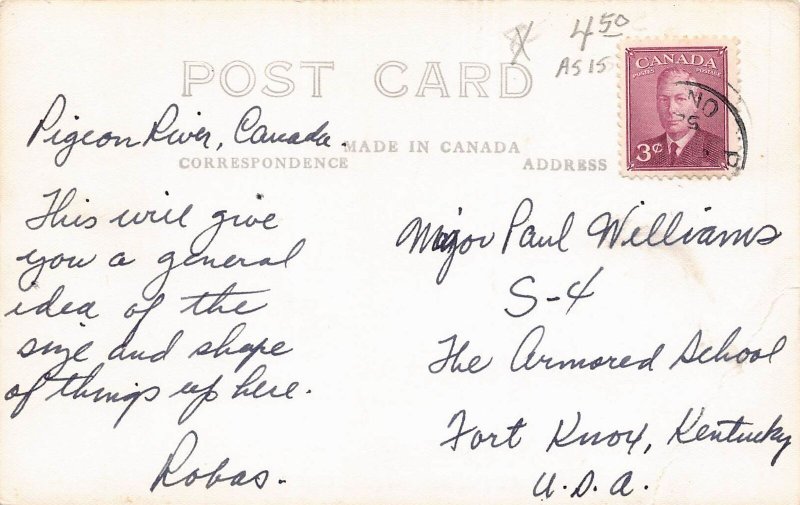 4.50
AS 15
POST CARD
CANADA
POSTES POSTAGE
3¢
Pigeon River, Canada.
MADE IN CANADA
CORRESPONDENCE
ADDRESS
This will give
you a general
idea of the
size and shape
of things up here.
Robas.
Major Paul Williams
S-4
The Armored School
Fort Knox, Kentucky
U.S.A.